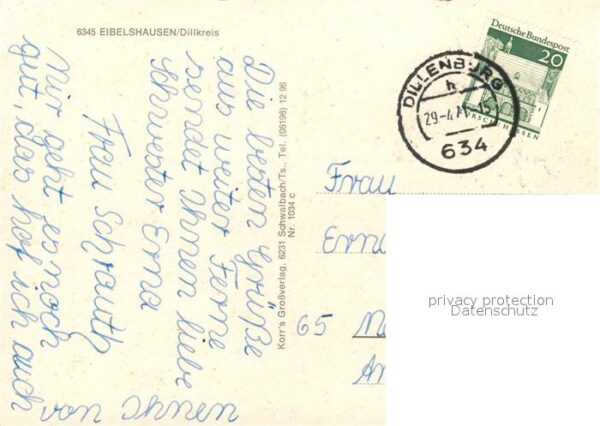 6345 EIBELSHAUSEN/Dillkreis
Die besten Grüße
aus weiter Ferne
sendet Ihnen liebe
Schwester Erna
Frau Schrauth
Mir geht es noch
gut, das hof ich auch
von Ihnen
Korr's Großverlag, 6231 Schwalbach/Ts., Tel. (06196) 12 96
Nr. 1034 c
Deutsche Bundespost
20
LORSCH/HESSEN
DILLENBURG
h
29-4.71-15
634
Frau
Erna
65 M
privacy protection
Datenschutz